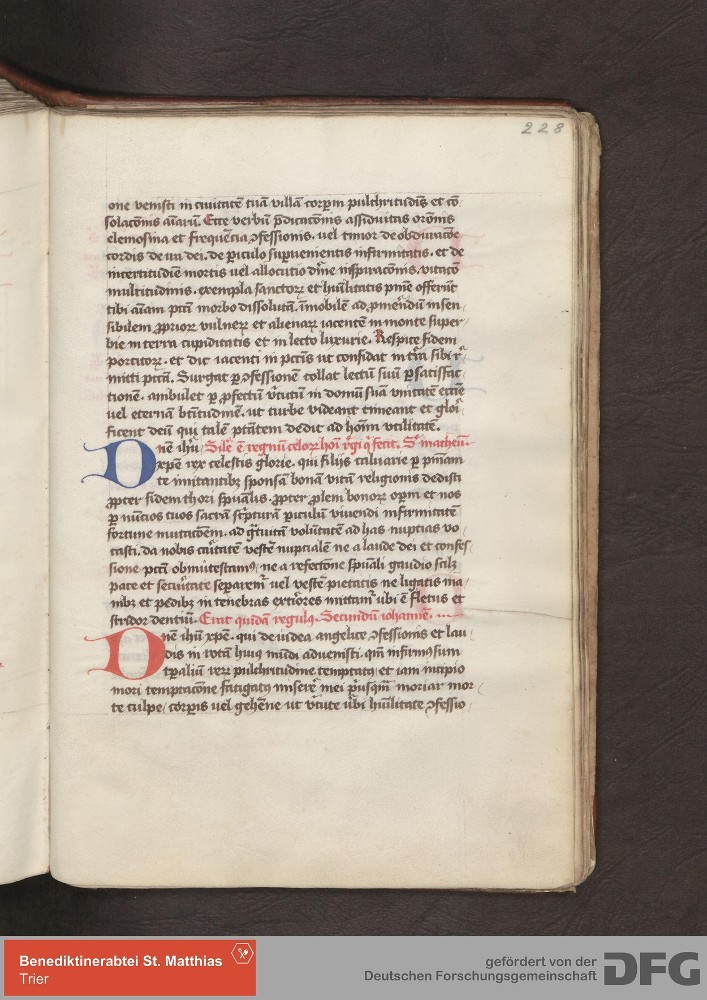 228
one venisti in ciuitatē tuā villā corpꝛm pulchritudīs et cō
solacōnis aīarū. Ecce verbū p̄dicacōnis assiduitas orōnis
elemosina et frequēcia ꝯfessionis. vel timor de obduracōe
cordis de ira dei. de ꝑiculo supruenientis infirmitatis. et de
incertitudīe mortis uel allocutio dīne inspiracōnis. vitacō
multitudinis. exempla sanctoꝝ et hūīlitatis pn̄ie offerūt
tibi aīam pctī morbo dissolutā. īmobilē ad ꝓmerēdū insen
sibilem ꝓprioꝝ vulneꝝ et alienaꝝ iacentē in monte super
bie in terra cupiditatis et in lecto luxurie. Respice fidem
portitoꝝ. et dic iacenti in pctīs ut confidat in t̄ra sibi r̄
mitti pctā. Surgat ꝑ ꝯfessionē tollat lectū suū ꝑ satisfac
tionē. ambulet ꝑ ꝓfectū v̄tutū in domū suā vnitatē eccīe
uel eternā btītudinē. ut turbe videant timeant et glori
ficent deū qui talē ptātem dedit ad hōīm vtilitatē.
Dn̄e ihū Sīle ē regnū celoꝝ hōī r̄gi q̄ fecit. S. matheū.
xpē rex celestis glorie. qui filijs caluarie ꝑ pn̄iam
te imitantibꝫ sponsam bonā vitā religionis dedisti
ꝓpter fidem thori spūalis. ꝓpter ꝓlem bonoꝝ opm et nos
ꝑ nūcios tuos sacrā sc̄pturā ꝑiculū viuendi infirmitatē
fortune mutacōem. ad ḡtuitā volūtatē ad has nuptias vo
casti. da nobis caītatē vestē nuptialē ne a laude dei et confes
sione pctī obmutestamꝰ, ne a refectione spūali gaudio scilꝫ
pace et secūitate separemr̄ vel vestē pietatis ne ligatis ma
nibꝫ et pedibꝫ in tenebras exteriores mittamr̄ ubi ē fletus et
stridor dentiū. Erat quidā regulꝰ. Secundū iohannē.
Dn̄e ihū xpē. qui de iudea angelice ꝯfessionis et lau
dis in rotā huiꝰ mūdi aduenisti. qm̄ infirmꝰ sum
tpaliū reꝝ pulchritudine temptatꝰ et iam incipio
mori temptacōne fatigatꝰ miserere mei priusqm̄ moriar mor
te culpe corporis uel gehēne ut v̄tute vbi hūilitate ꝯfessio
Benediktinerabtei St. Matthias
Trier
gefördert von der
Deutschen Forschungsgemeinschaft
DFG